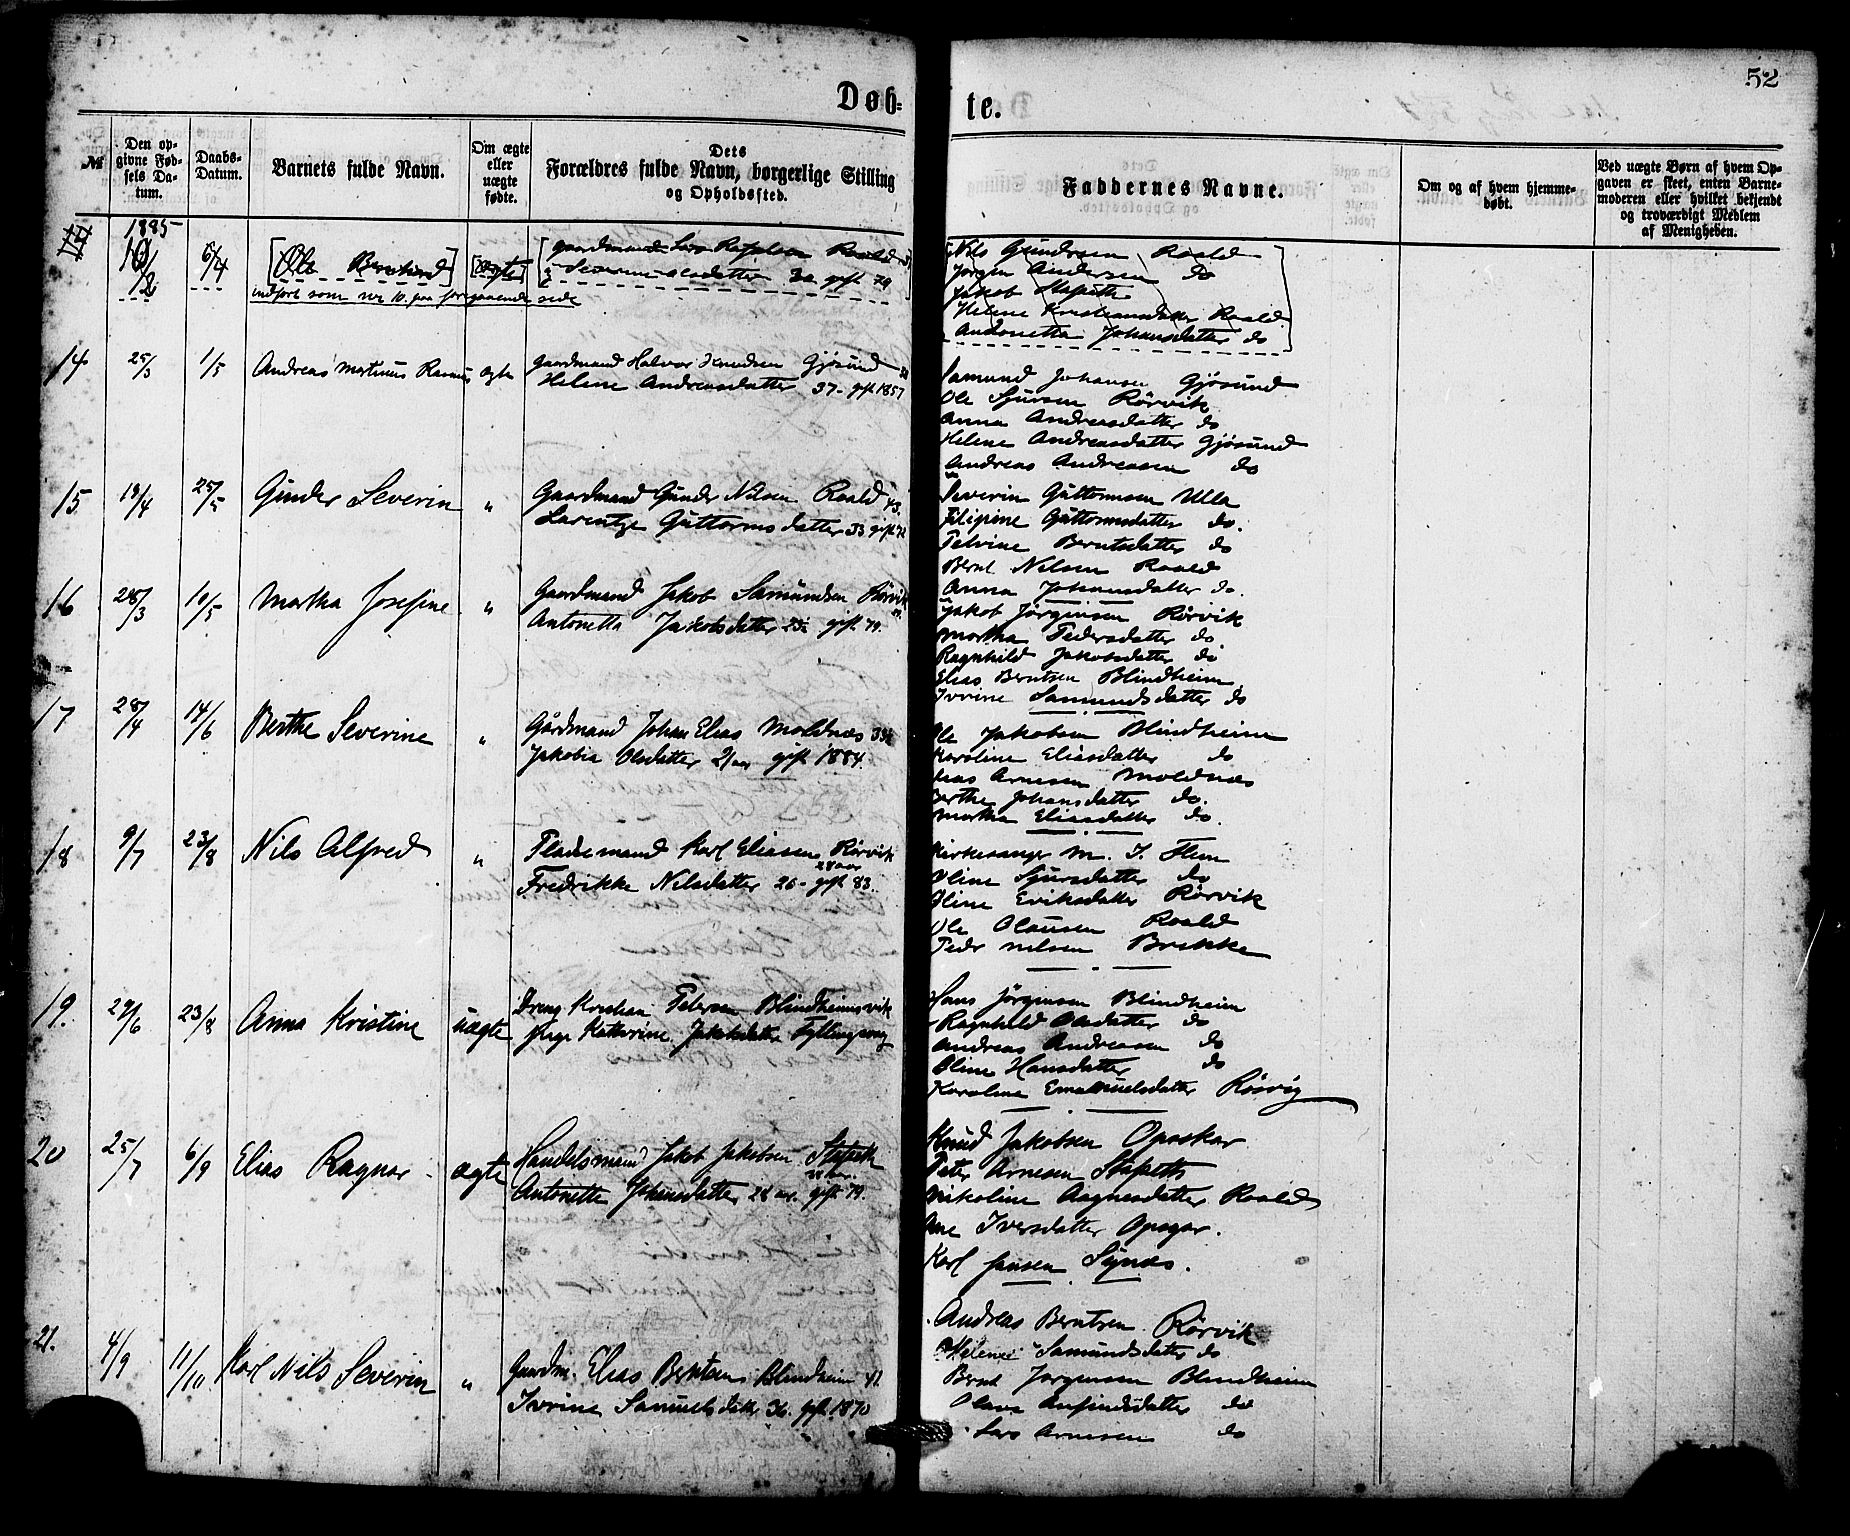 52
Døb-
te.
№
Den op-
givne Fød-
sels Da-
tum.
Daabs-
Datum.
Barnets fulde Navn.
Om ægte
eller
uægte
fødte.
Dets
Forældres fulde Navn, borgerlige Stilling
og Opholdssted.
Faddernes Navne.
Om og af hvem hjemme-
døbt.
Ved uægte Børn af hvem Op-
gaven er skeet, enten Barne-
moderen eller hvilket bekjendt
og troværdigt Medlem
af Menigheden.
1885
6/4 [Ole Bernhard] [ægte] [Gaardmand Lars Roald
Severine Olsdatter 32 gift 79]
indført som no 10 paa foregaaende side
[Nils Gundersen Roald
Jørgen Andersen do
Jakob Stapeth
Helene Kristiansdatter Roald
Antonette Johansdatter do]
14 25/3 1/5 Andreas Martinus Rasmus ægte Gaardmand Halvor Knudsen Gjøsund
Helene Andreasdatter 37 - gift 1857
Samund Johansen Gjøsund
Ole Sjursen Rørvik
Anna Andreasdatter do
Helene Andreasdatter Gjøsund
Andreas Andreasen do
15 18/4 25/5 Gunder Severin " Gaardmand Gunder Nilsen Roald 43.
Larentze Guttormsdatter 33 gift
Severin Guttormsen Ulla
Filipine Guttormsdatter do.
Petrine Berntsdatter do
Bernt Nilsen Roald
Anna Johannsdatter do.
16 28/3 10/5 Martha Josefine " Gaardmand Jakob Samundsen Rørvik
Antonetta Jakobsdatter gift 79.
Jakob Jørgensen Rørvik
Martha Pedersdatter do
Ragnhild Jakobsdatter do
Elias Berntsen Blindheim
Ivrine Samundsdatter do
17 28/4 14/6 Berthe Severine " Gårdmand Johan Elias Moldnæs
Jakobia Olsdatter 21 aar gift 1884.
Ole Jakobsen Blindheim
Karoline Eliasdatter do
Elias Arnesen Moldnæs
Berthe Johansdatter do.
Martha Eliasdatter do.
18 9/7 23/8 Nils Alfred " Pladsemand Karl Eliasen Rørvik
28 aar
Fredrikke Nilsdatter 26 - gift 83.
Kirkesanger M. J. Flem
Oline Sjursdatter do
Oline Eriksdatter Rørvik
Ole Olausen Roald
Peder Nilsen Brekke
19. 29/6 23/8 Anna Kristine uægte Dreng Kristian Petersen Blindheimsvik
Pige Katharine Jakobsdatter
Hans Jørgensen Blindheim
Ragnhild Olsdatter do
Andreas Andreasen do
Oline Hansdatter do
Karoline Emanuelsdatter Rørvig
20 25/7 6/9 Elias Ragnar - ægte Handelsmand Jakob Jakobsen Stapeth
Antonette Johansdatter 28 aar. gift 79.
Knud Jakobsen Opaskar
Peter Arnesen Stapeth
Nikoline Aagnesdatter Roald
Ane Iversdatter Opsgar.
Karl Jansen Synæs.
21. 4/9 11/10 Karl Nils Severin " Gaardm. Elias Berntsen Blindheim 41
Ivrine Samuelsdatter 36. gift. 1870
Andreas Berntsen Rørvik
Helene Samundsdatter do
Bernt Jørgensen Blindheim
Olava Anfindsdatter do
Lars Arnesen do